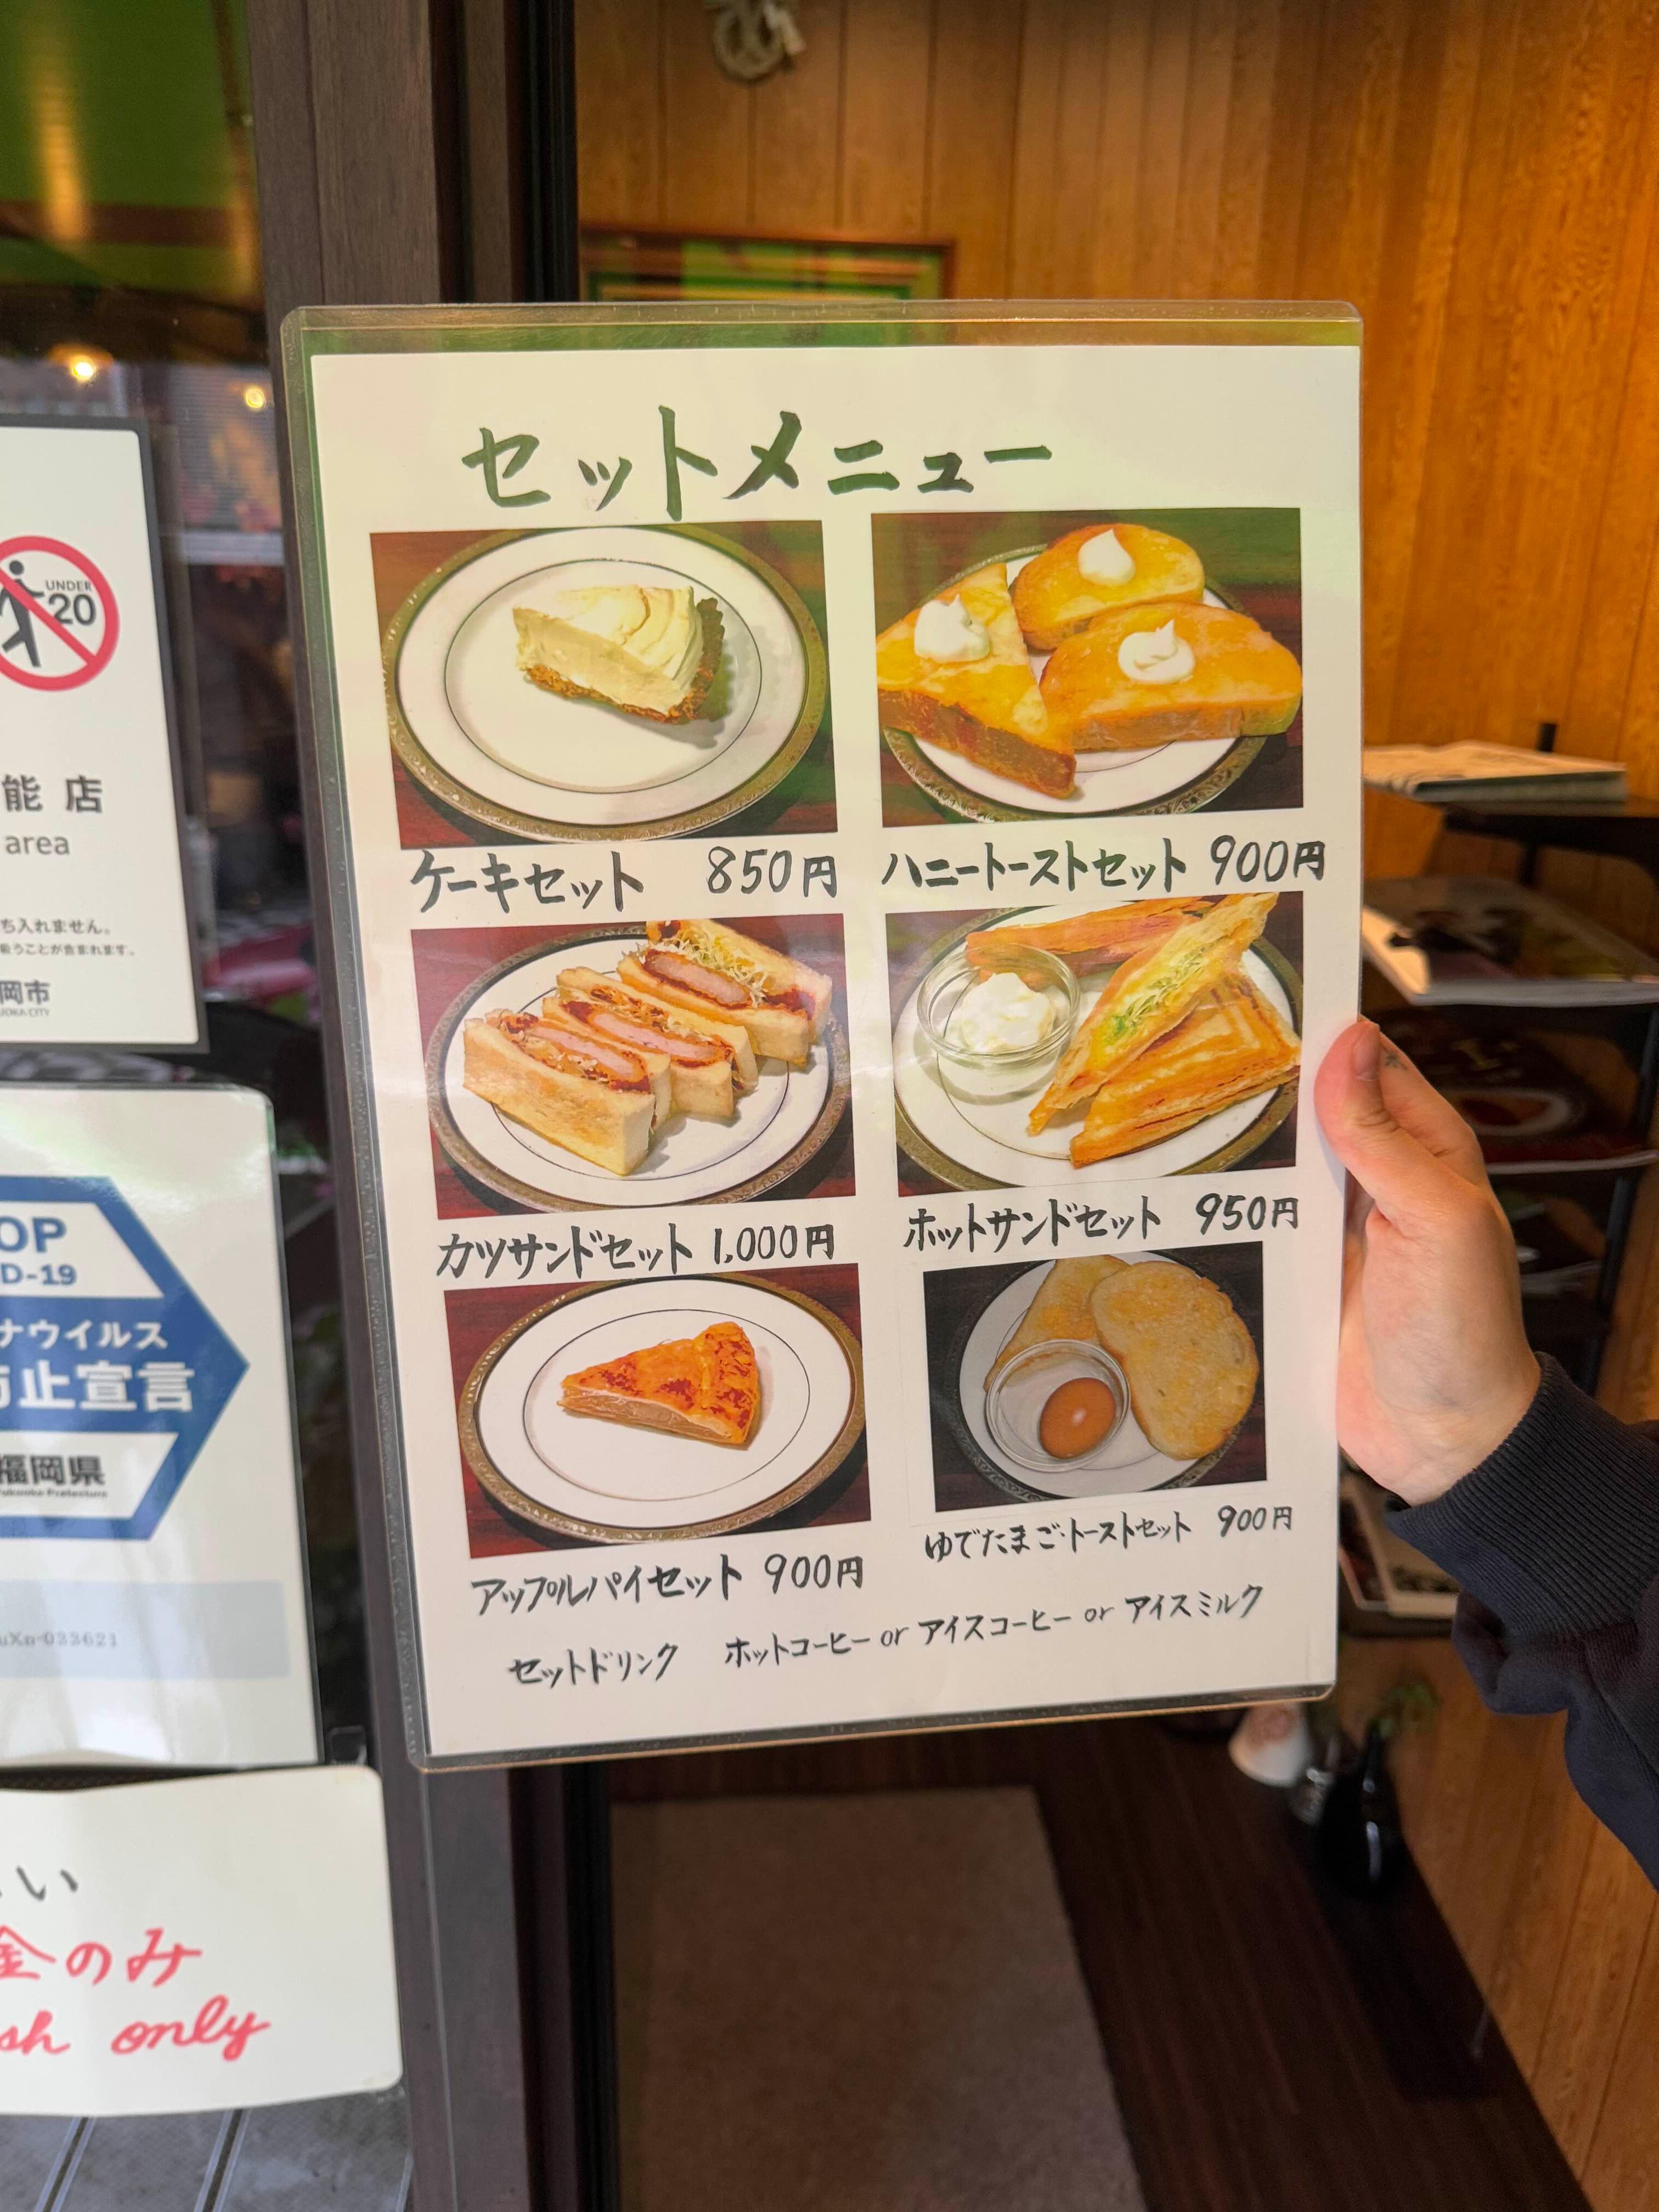 セットメニュー
ケーキセット 850円
ハニートーストセット 900円
カツサンドセット 1,000円
ホットサンドセット 950円
アップルパイセット 900円
ゆでたまご・トーストセット 900円
セットドリンク ホットコーヒー or アイスコーヒー or アイスミルク
UNDER
20
能店
area
ち入れません。
吸うことが含まれます。
岡市
UOKA CITY
OP
D-19
ナウイルス
防止宣言
福岡県
Fukuoka Prefecture
uXn-033621
い
金のみ
sh only